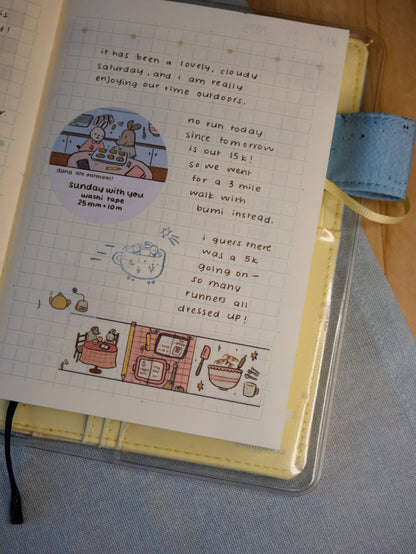 it has been a lovely, cloudy
saturday, and i am really
enjoying our time outdoors.
no run today
since tomorrow
is our 15k!
so we went
for a 3 mile
walk with
bumi instead.
dana ate oatmeal!
sunday with you
washi tape
25mm • 10m
i guess there
was a 5k
going on -
so many
runners all
dressed up!